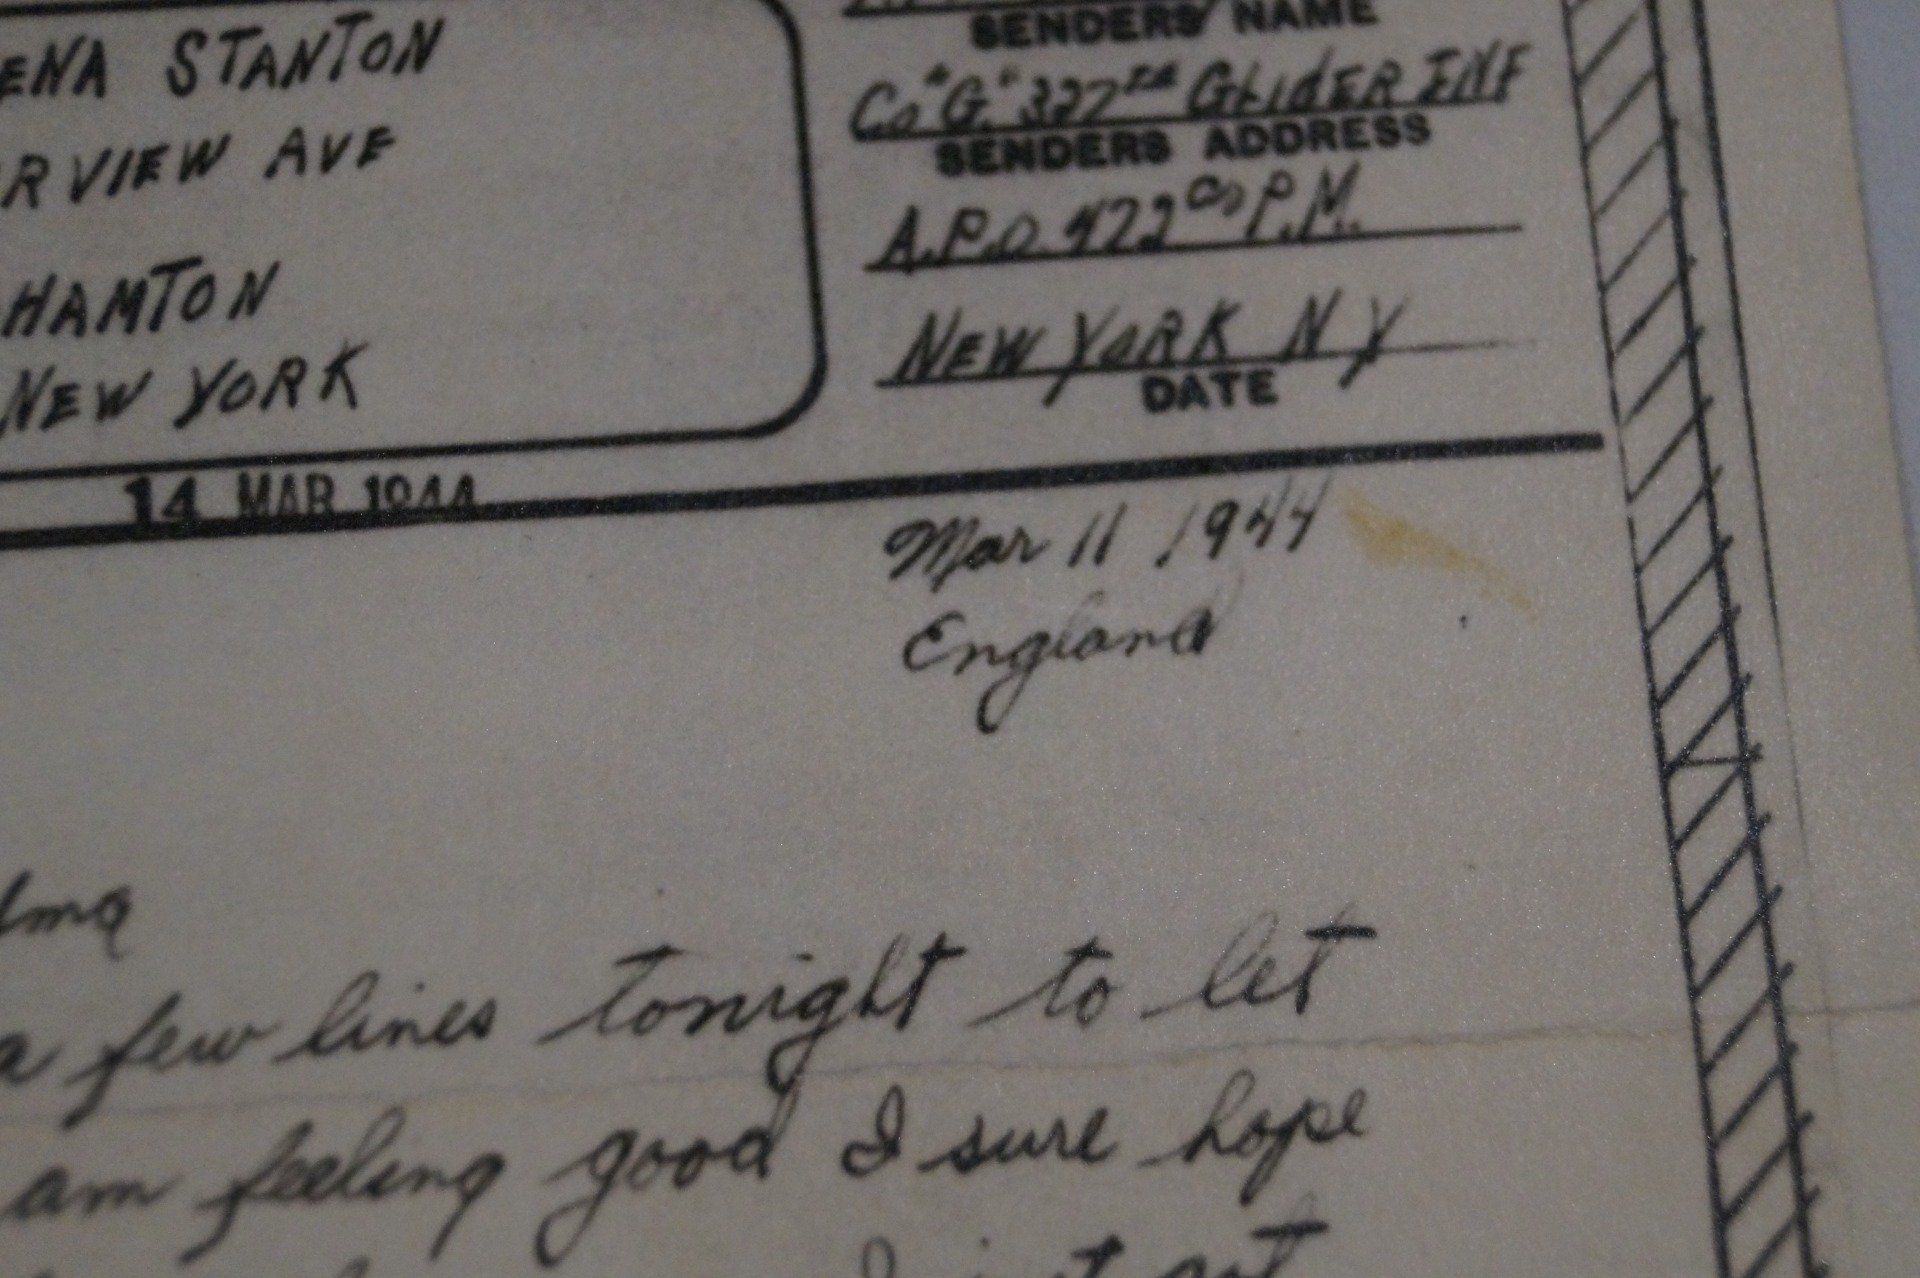 ENA STANTON
RVIEW AVE
HAMTON
NEW YORK
SENDERS NAME
Co "G" 327TH GLIDER INF
SENDERS ADDRESS
A.P.O 472 c/o P.M.
NEW YORK N Y
DATE
14 MAR 1944
Mar 11 1944
England
dma
a few lines tonight to let
am feeling good I sure hope
I just got